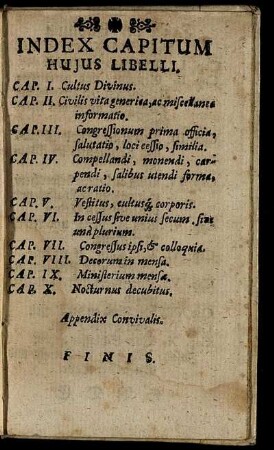 INDEX CAPITUM
HUJUS LIBELLI.
CAP. I. Cultus Divinus.
CAP. II. Civilis vita generica, ac miscellanea
informatio.
CAP. III. Congressionum prima officia,
salutatio, loci cessio, similia.
CAP. IV. Compellandi, monendi, car-
pendi, salibus utendi forma,
ac ratio.
CAP. V. Vestitus, cultusq́; corporis.
CAP. VI. In cessus sive unius secum sive
unà plurium.
CAP. VII. Congressus ipsi, & colloquia.
CAP. VIII. Decorum in mensa.
CAP. IX. Ministerium mensæ.
CAP. X. Nocturnus decubitus.
Appendix Convivalis.
FINIS.